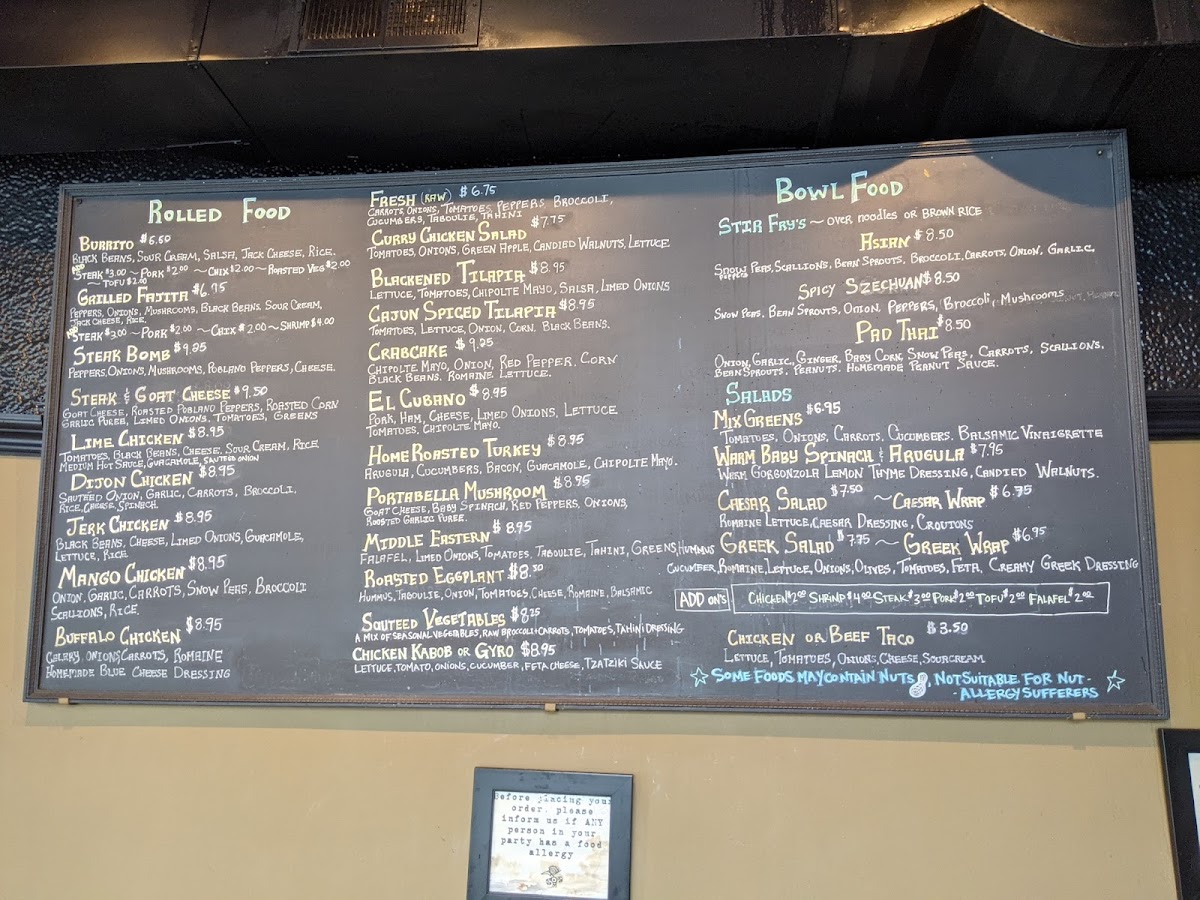 Rolled Food
Burrito $6.50
Black Beans, Sour Cream, Salsa, Jack Cheese, Rice.
ADD Steak $3.00 ~ Pork $2.00 ~ Chix $2.00 ~ Roasted Veg $2.00
~ Tofu $2.00
Grilled Fajita $6.75
Peppers, Onions, Mushrooms, Black Beans, Sour Cream,
Jack Cheese, Rice.
ADD Steak $3.00 ~ Pork $2.00 ~ Chix $2.00 ~ Shrimp $4.00
Steak Bomb $9.25
Peppers, Onions, Mushrooms, Poblano Peppers, Cheese.
Steak & Goat Cheese $9.50
Goat Cheese, Roasted Poblano Peppers, Roasted Corn
Garlic Puree, Limed Onions, Tomatoes, Greens
Lime Chicken $8.95
Tomatoes, Black Beans, Cheese, Sour Cream, Rice
Medium Hot Sauce, Guacamole, Sauteed Onion
Dijon Chicken $8.95
Sauteed Onion, Garlic, Carrots, Broccoli.
Rice, Cheese, Spinach
Jerk Chicken $8.95
Black Beans, Cheese, Limed Onions, Guacamole,
Lettuce, Rice
Mango Chicken $8.95
Onion, Garlic, Carrots, Snow Peas, Broccoli
Scallions, Rice.
Buffalo Chicken $8.95
Celery, Onions, Carrots, Romaine
Homemade Blue Cheese Dressing
Fresh (Raw) $6.75
Carrots, Onions, Tomatoes, Peppers, Broccoli,
Cucumbers, Taboulie, Tahini
Curry Chicken Salad $7.75
Tomatoes, Onions, Green Apple, Candied Walnuts, Lettuce
Blackened Tilapia $8.95
Lettuce, Tomatoes, Chipolte Mayo, Salsa, Limed Onions
Cajun Spiced Tilapia $8.95
Tomatoes, Lettuce, Onion, Corn, Black Beans.
Crabcake $9.25
Chipolte Mayo, Onion, Red Pepper, Corn
Black Beans, Romaine Lettuce.
El Cubano $8.95
Pork, Ham, Cheese, Limed Onions, Lettuce
Tomatoes, Chipolte Mayo.
Home Roasted Turkey $8.95
Arugula, Cucumbers, Bacon, Guacamole, Chipolte Mayo.
Portabella Mushroom $8.95
Goat Cheese, Baby Spinach, Red Peppers, Onions,
Roosted Garlic Puree.
Middle Eastern $8.95
Falafel, Limed Onions, Tomatoes, Taboulie, Tahini, Greens, Hummus
Roasted Eggplant $8.50
Hummus, Taboulie, Onion, Tomatoes, Cheese, Romaine, Balsamic
Sauteed Vegetables $8.25
A mix of seasonal vegetables, raw broccoli + carrots, tomatoes, tahini dressing
Chicken Kabob or Gyro $8.95
Lettuce, Tomato, Onions, Cucumber, Feta Cheese, Tzatziki Sauce
Bowl Food
Stir Fry's ~ over noodles or brown rice
Asian $8.50
Snow Peas, Scallions, Bean Sprouts, Broccoli, Carrots, Onion, Garlic.
Peppers
Spicy Szechuan $8.50
Snow Peas, Bean Sprouts, Onion, Peppers, Broccoli, Mushrooms
Pad Thai $8.50
Onion, Garlic, Ginger, Baby Corn, Snow Peas, Carrots, Scallions,
Bean Sprouts, Peanuts, Homemade Peanut Sauce.
Salads
Mix Greens $6.95
Tomatoes, Onions, Carrots, Cucumbers, Balsamic Vinaigrette
Warm Baby Spinach & Arugula $7.95
Warm Gorgonzola Lemon Thyme Dressing, Candied Walnuts.
Caesar Salad $7.50 ~ Caesar Wrap $6.75
Romaine Lettuce, Caesar Dressing, Croutons
Greek Salad $7.75 ~ Greek Wrap $6.95
Cucumber, Romaine, Lettuce, Onions, Olives, Tomatoes, Feta, Creamy Greek Dressing
Add on's Chicken $2.00 Shrimp $4.00 Steak $3.00 Pork $2.00 Tofu $2.00 Falafel $2.00
Chicken or Beef Taco $3.50
Lettuce, Tomatoes, Onions, Cheese, Sourcream
Some foods may contain nuts, not suitable for nut-
-allergy sufferers
Before placing your
order, please
inform us if ANY
person in your
party has a food
allergy